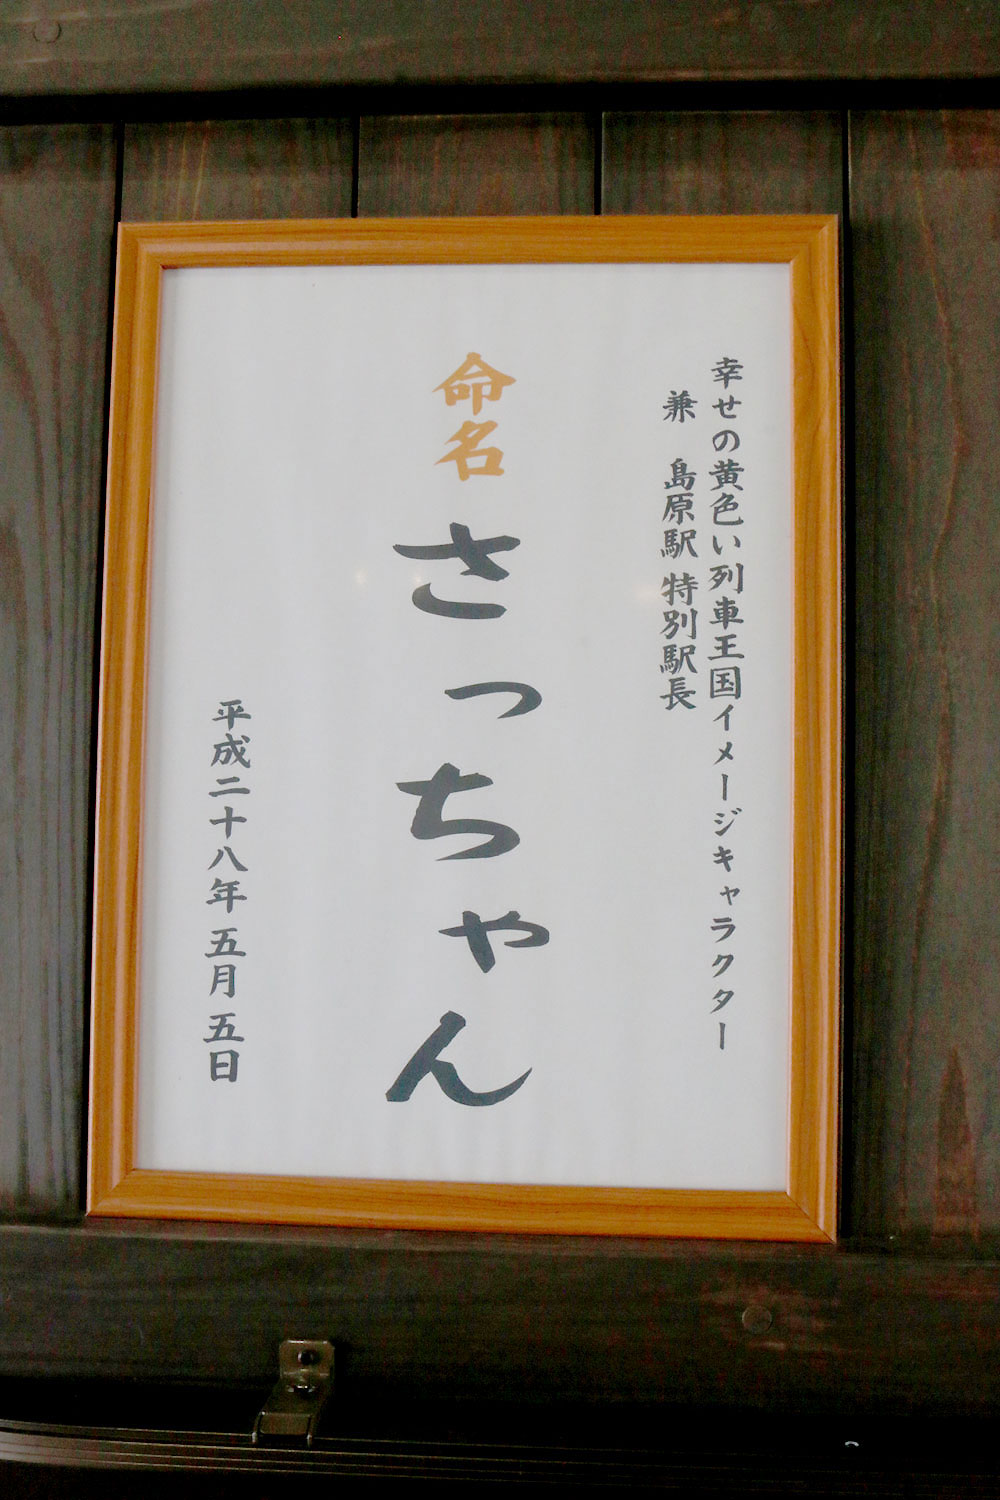 幸せの黄色い列車王国イメージキャラクター
兼　島原駅 特別駅長
命名 さっちゃん
平成二十八年 五月 五日